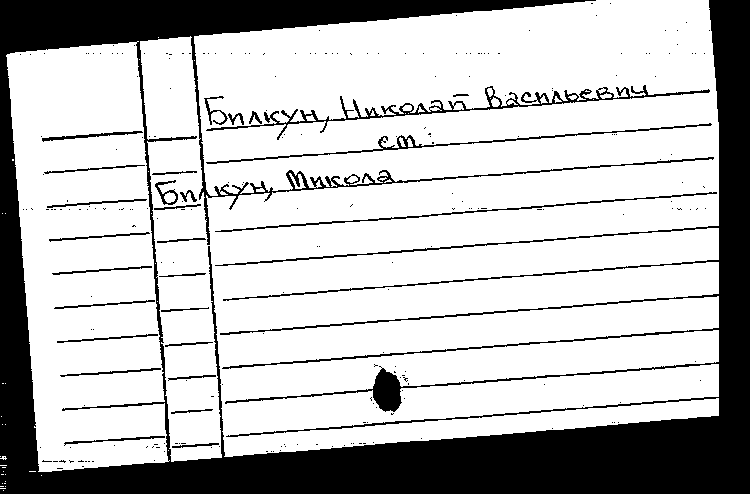 Билкун, Николай Васильевич
см.:
Билкун, Микола